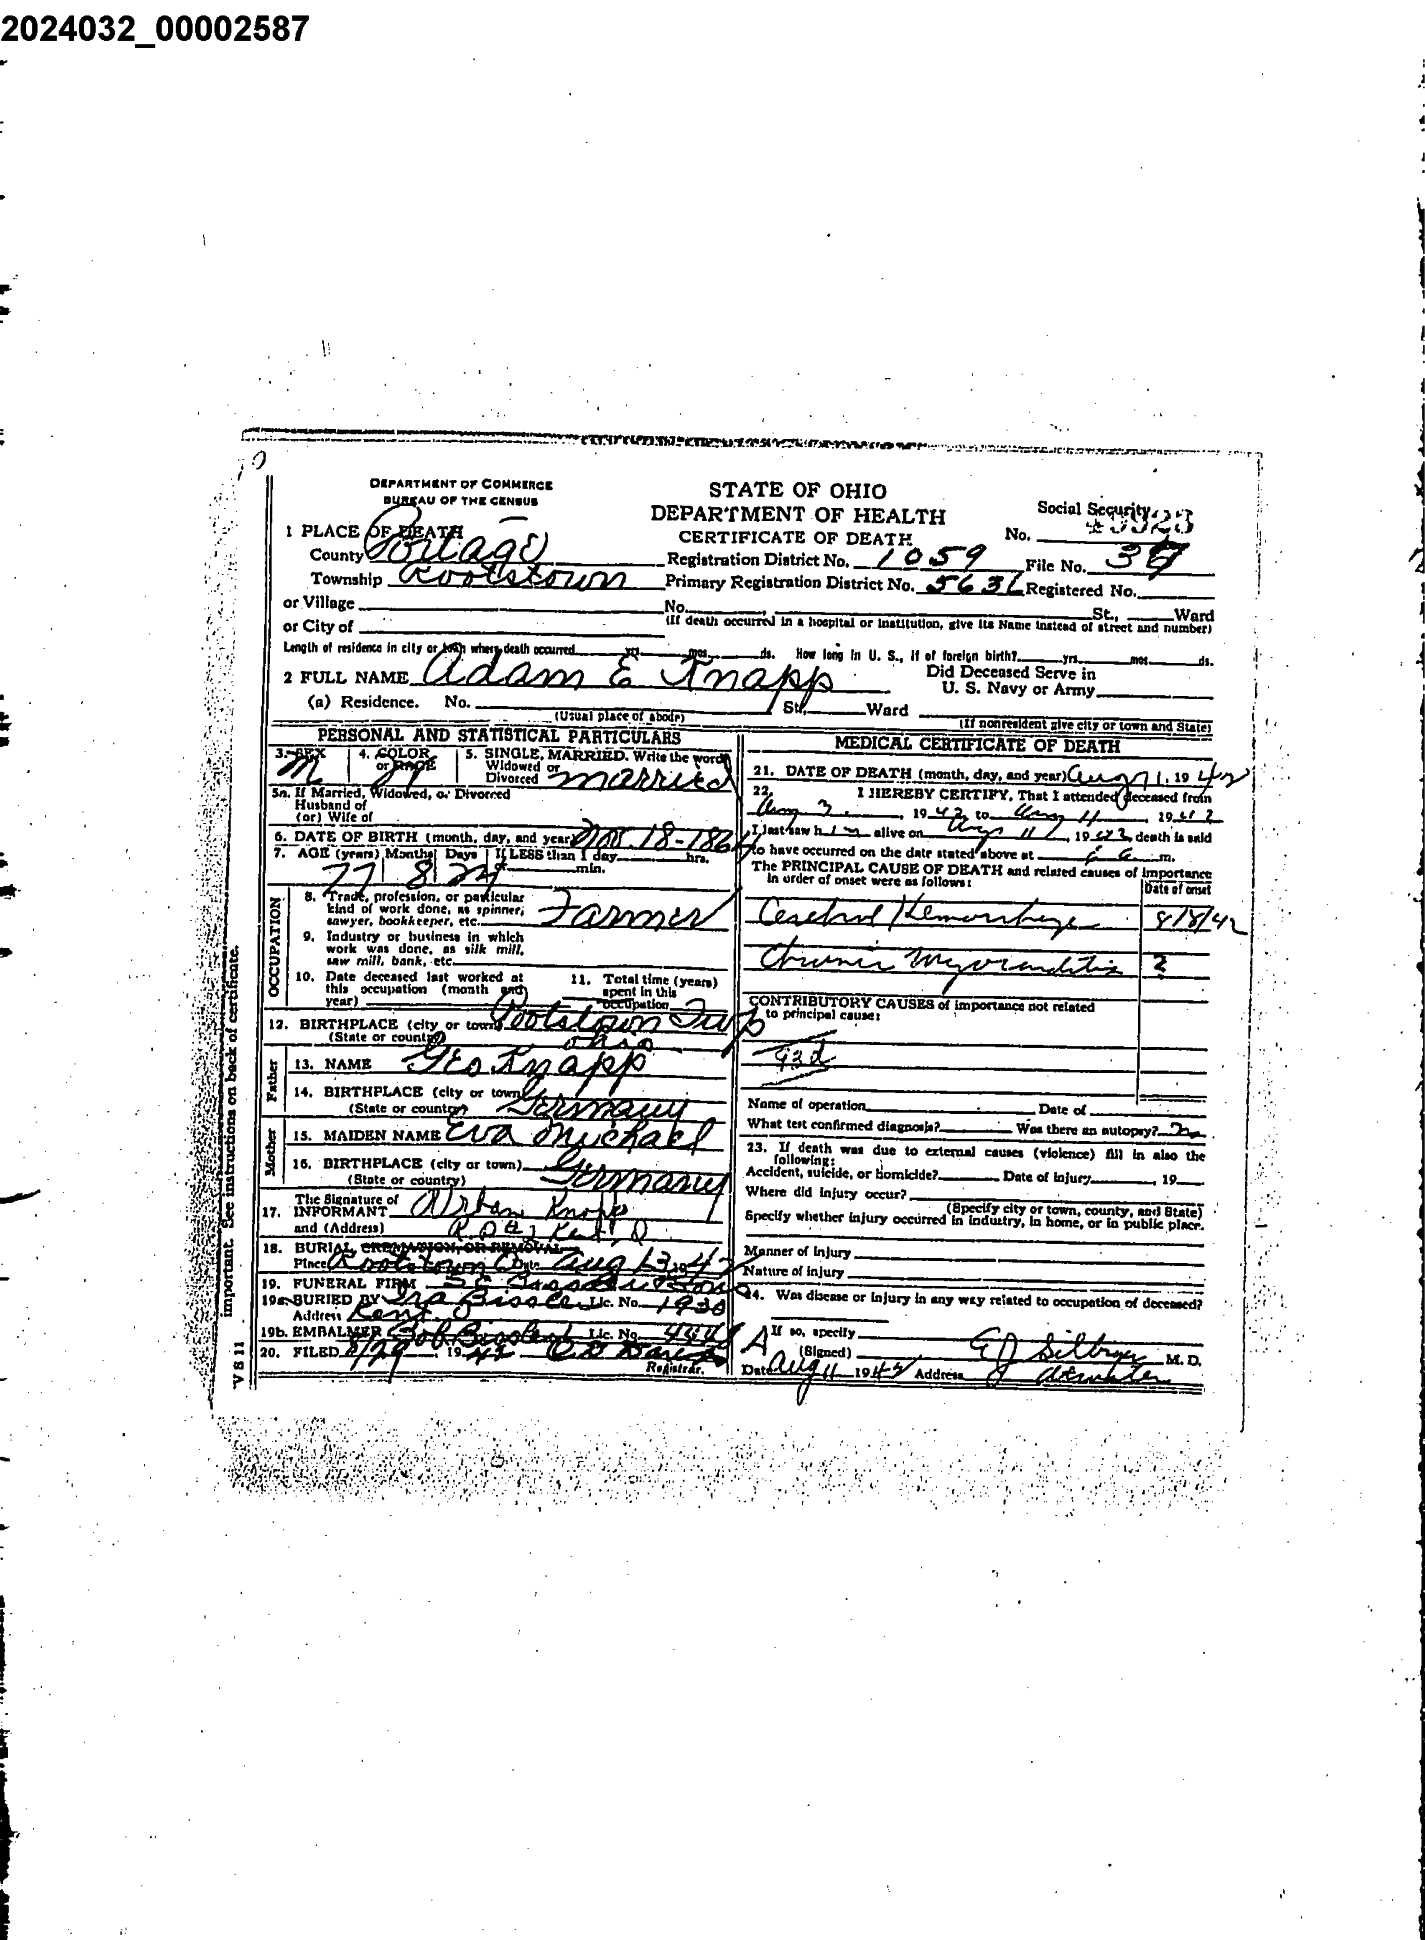 2024032_00002587
DEPARTMENT OF COMMERCE
BUREAU OF THE CENSUS
STATE OF OHIO
DEPARTMENT OF HEALTH
CERTIFICATE OF DEATH
Social Security
No.
1 PLACE OF DEATH
County Portage
Registration District No. 1059 File No.
Township Rootstown Primary Registration District No. Registered No.
or Village No. St., Ward
or City of (If death occurred in a hospital or institution, give its Name instead of street and number)
Length of residence in city or town where death occurred yrs. mos. ds. How long in U. S., if of foreign birth? yrs. mos. ds.
2 FULL NAME Adam E Knapp Did Deceased Serve in
U. S. Navy or Army
(a) Residence. No. St., Ward
(Usual place of abode) (If nonresident give city or town and State)
PERSONAL AND STATISTICAL PARTICULARS
3. SEX M 4. COLOR or RACE 5. SINGLE, MARRIED. Write the word
Widowed or
Divorced Married
5a. If Married, Widowed, or Divorced
Husband of
(or) Wife of
6. DATE OF BIRTH (month, day, and year) Nov. 18-1864
7. AGE (years) Months Days If LESS than 1 day hrs.
or min.
77 8 24
OCCUPATION
8. Trade, profession, or particular
kind of work done, as spinner,
sawyer, bookkeeper, etc. Farmer
9. Industry or business in which
work was done, as silk mill,
saw mill, bank, etc.
10. Date deceased last worked at
this occupation (month and
year)
11. Total time (years)
spent in this
occupation
12. BIRTHPLACE (city or town) Rootstown Twp
(State or country) Ohio
Father
13. NAME Geo Knapp
14. BIRTHPLACE (city or town)
(State or country) Germany
Mother
15. MAIDEN NAME Eva Michael
16. BIRTHPLACE (city or town)
(State or country) Germany
The Signature of
17. INFORMANT Urban Knapp
and (Address) Kent, O
18. BURIAL, CREMATION, OR REMOVAL
Place Rootstown O Date Aug 13 1942
19. FUNERAL FIRM S E Bissler & Sons
19a. BURIED BY Ira Bissler Lic. No. 1930
Address Kent O
19b. EMBALMER Bob Bissler Lic. No.
20. FILED 8/29, 1942
Registrar.
MEDICAL CERTIFICATE OF DEATH
21. DATE OF DEATH (month, day, and year) Aug 11, 1942
22. I HEREBY CERTIFY, That I attended deceased from
Aug 3, 1942, to Aug 11, 1942
I last saw him alive on Aug 11, 1942, death is said
to have occurred on the date stated above at m.
The PRINCIPAL CAUSE OF DEATH and related causes of importance
in order of onset were as follows:
Date of onset
Cerebral Hemorrhage 8/8/42
Chronic Myocarditis ?
CONTRIBUTORY CAUSES of importance not related
to principal cause:
Name of operation Date of
What test confirmed diagnosis? Was there an autopsy? No
23. If death was due to external causes (violence) fill in also the
following:
Accident, suicide, or homicide? Date of injury 19
Where did injury occur?
(Specify city or town, county, and State)
Specify whether injury occurred in industry, in home, or in public place.
Manner of injury
Nature of injury
24. Was disease or injury in any way related to occupation of deceased?
If so, specify
(Signed) M. D.
Date Aug 11 1942 Address Atwater
important. See instructions on back of certificate.
V S 11